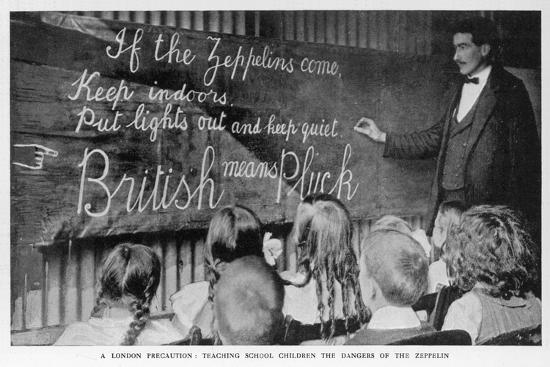 If the Zeppelins come,
Keep indoors.
Put lights out and keep quiet.
British means Pluck
A LONDON PRECAUTION : TEACHING SCHOOL CHILDREN THE DANGERS OF THE ZEPPELIN